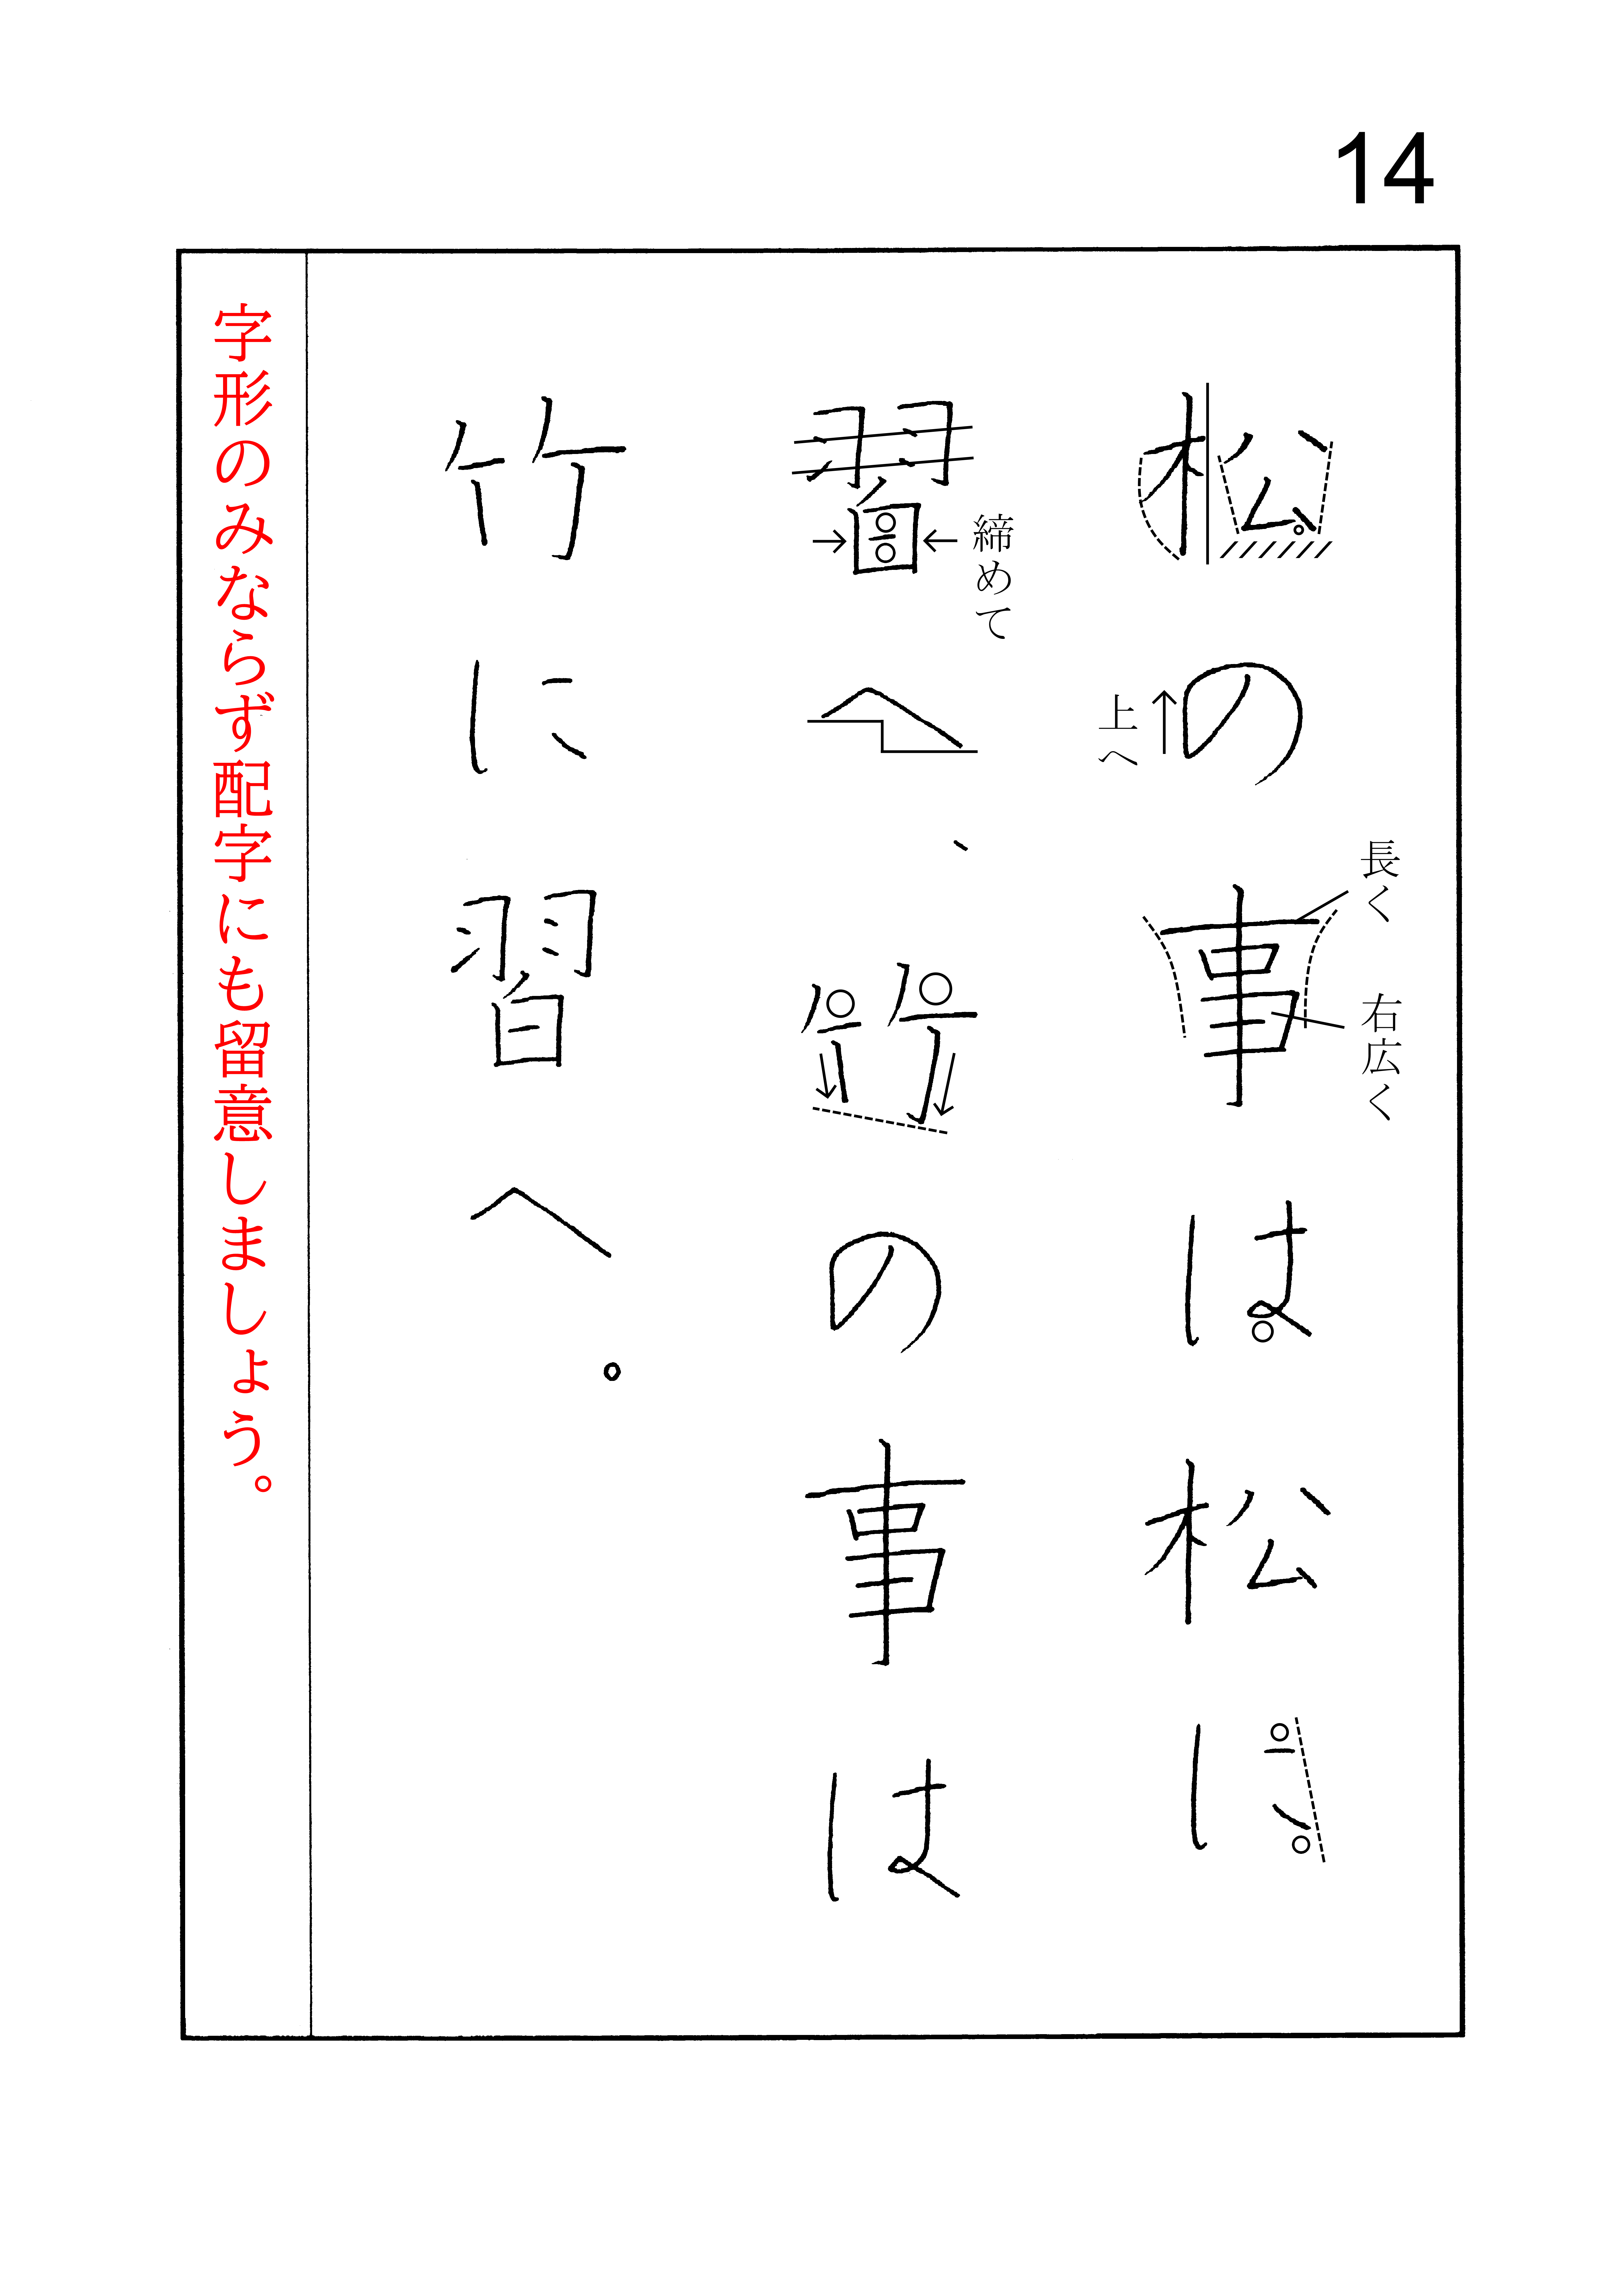 14
長く
右広く
松の事は松に
上へ
締めて
習へ、竹の事は
竹に習へ。
字形のみならず配字にも留意しましょう。